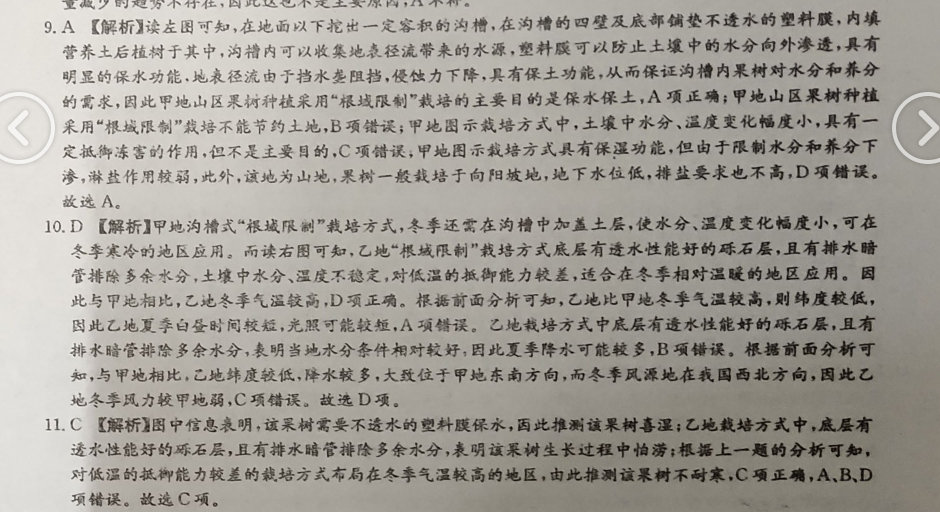 量减少的趋势不存在,因此这也不是主要原因,A不符。
9. A 【解析】读左图可知,在地面以下挖出一定容积的沟槽,在沟槽的四壁及底部铺垫不透水的塑料膜,内填
营养土后植树于其中,沟槽内可以收集地表径流带来的水源,塑料膜可以防止土壤中的水分向外渗透,具有
明显的保水功能,地表径流由于挡水垄阻挡,侵蚀力下降,具有保土功能,从而保证沟槽内果树对水分和养分
的需求,因此甲地山区果树种植采用“根域限制”栽培的主要目的是保水保土,A项正确;甲地山区果树种植
采用“根域限制”栽培不能节约土地,B项错误;甲地图示栽培方式中,土壤中水分、温度变化幅度小,具有一
定抵御冻害的作用,但不是主要目的,C项错误;甲地图示栽培方式具有保湿功能,但由于限制水分和养分下
渗,淋盐作用较弱,此外,该地为山地,果树一般栽培于向阳坡地,地下水位低,排盐要求也不高,D项错误。
故选A。
10. D 【解析】甲地沟槽式“根域限制”栽培方式,冬季还需在沟槽中加盖土层,使水分、温度变化幅度小,可在
冬季寒冷的地区应用。而读右图可知,乙地“根域限制”栽培方式底层有透水性能好的砾石层,且有排水暗
管排除多余水分,土壤中水分、温度不稳定,对低温的抵御能力较差,适合在冬季相对温暖的地区应用。因
此与甲地相比,乙地冬季气温较高,D项正确。根据前面分析可知,乙地比甲地冬季气温较高,则纬度较低,
因此乙地夏季白昼时间较短,光照可能较短,A项错误。乙地栽培方式中底层有透水性能好的砾石层,且有
排水暗管排除多余水分,表明当地水分条件相对较好,因此夏季降水可能较多,B项错误。根据前面分析可
知,与甲地相比,乙地纬度较低、降水较多,大致位于甲地东南方向,而冬季风源地在我国西北方向,因此乙
地冬季风力较甲地弱,C项错误。故选D项。
11. C 【解析】图中信息表明,该果树需要不透水的塑料膜保水,因此推测该果树喜湿;乙地栽培方式中,底层有
透水性能好的砾石层,且有排水暗管排除多余水分,表明该果树生长过程中怕涝;根据上一题的分析可知,
对低温的抵御能力较差的栽培方式布局在冬季气温较高的地区,由此推测该果树不耐寒,C项正确,A、B、D
项错误。故选C项。